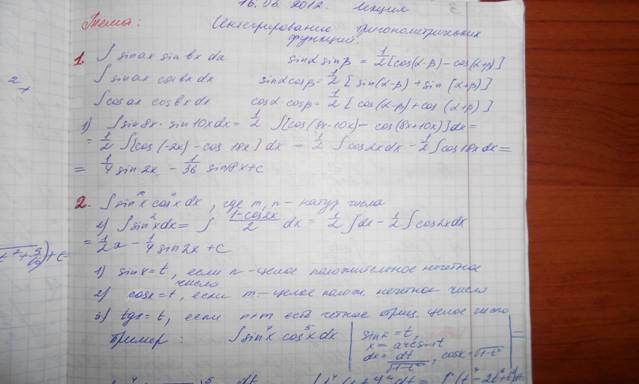 16.06.2012. Лекция
Тема: Интегрирование тригонометрических
функций.
1. ∫ sinax sinbx dx sinα sinβ = 1/2 [cos(α-β) - cos(α+β)]
∫ sinax cosbx dx sinα cosβ = 1/2 [sin(α-β) + sin(α+β)]
∫ cosax cosbx dx cosα cosβ = 1/2 [cos(α-β) + cos(α+β)]
1) ∫ sin8x · sin10x dx = 1/2 ∫ [cos(8x-10x) - cos(8x+10x)] dx =
= 1/2 ∫ [cos(-2x) - cos 18x] dx = 1/2 ∫ cos2x dx - 1/2 ∫ cos18x dx =
= 1/4 sin2x - 1/36 sin18x + C
2. ∫ sin^m x cos^n x dx, где m, n - натур числа
2) ∫ sin²x dx = ∫ (1-cos2x)/2 dx = 1/2 ∫ dx - 1/2 ∫ cos2x dx
= 1/2 x - 1/4 sin2x + C
1) sinx = t, если n - целое положительное нечетное
число
2) cosx = t, если m - целое полож. нечетное число
3) tgx = t, если n+m есть четное отриц. целое число
Пример: ∫ sin⁴x cos⁵x dx | sinx = t,
x = arcsin t
dx = dt/√1-t², cosx = √1-t²